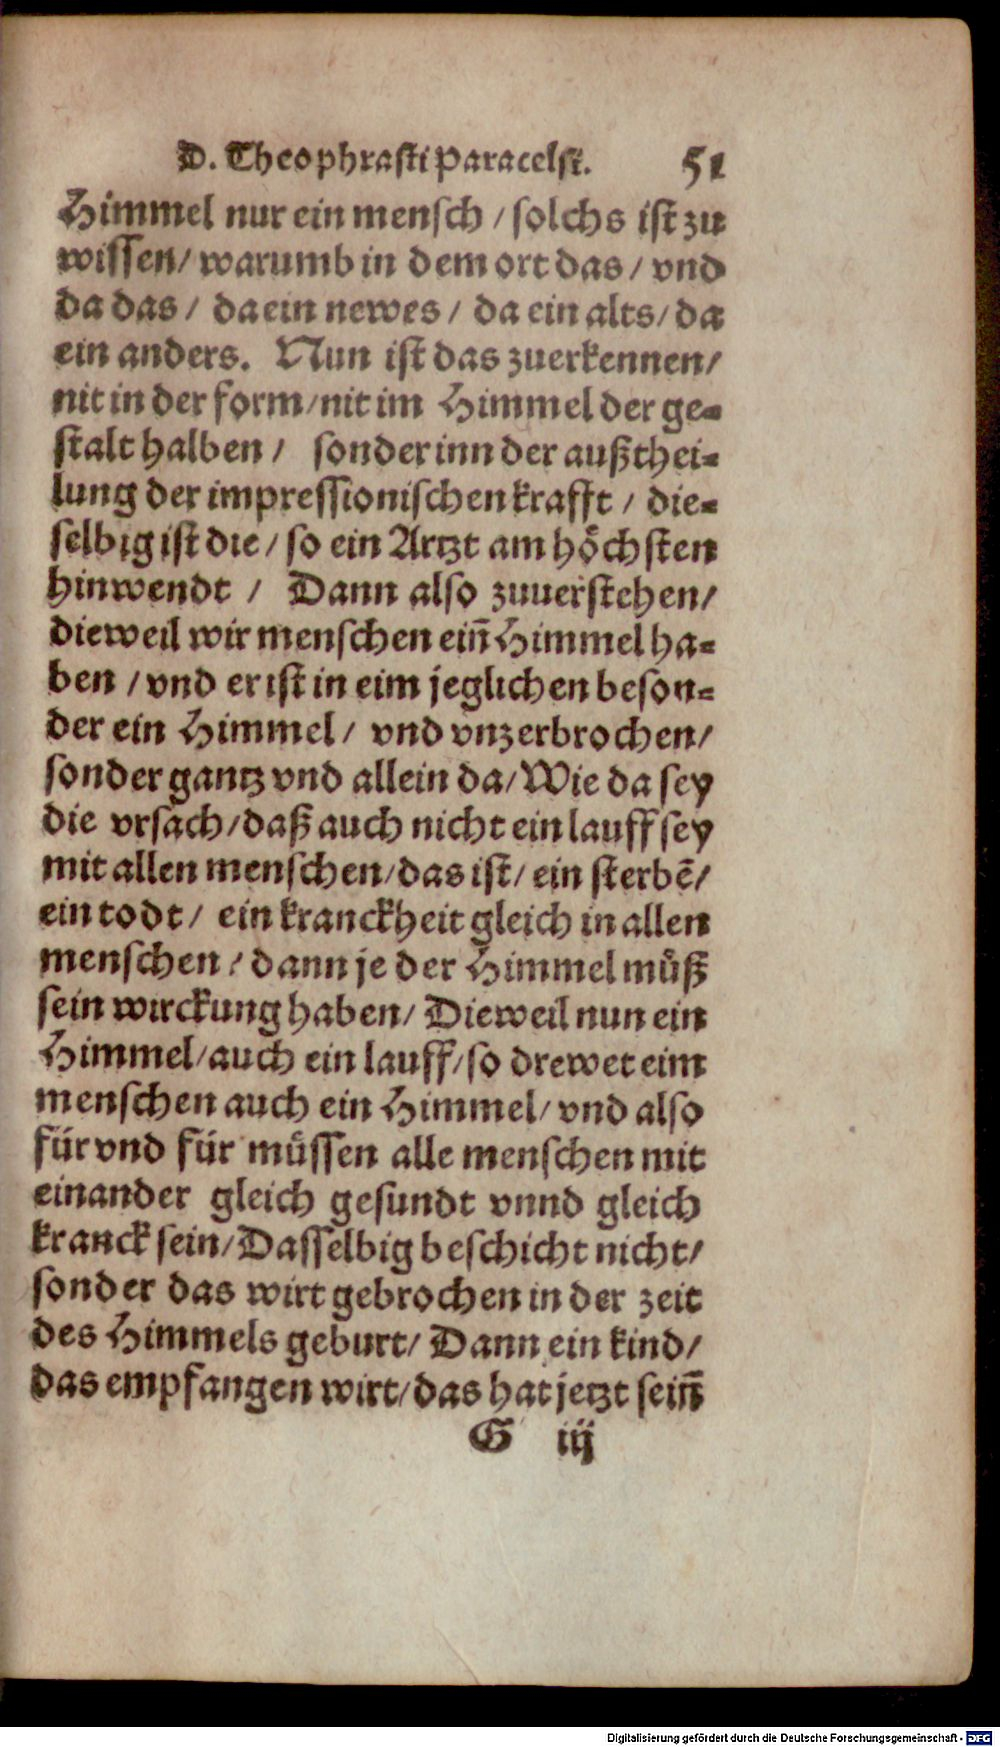 D. Theophrasti Paracelsi. 51
Himmel nur ein mensch / solchs ist zu
wissen / warumb in dem ort das / vnd
da das / da ein newes / da ein alts / da
ein anders. Nun ist das zuerkennen /
nit in der form / nit im Himmel der ge-
stalt halben / sonder inn der außthei-
lung der impressionischen krafft / die-
selbig ist die / so ein Artzt am höchsten
hinwendt / Dann also zuuerstehen /
dieweil wir menschen ein̄ Himmel ha-
ben / vnd er ist in eim jeglichen beson-
der ein Himmel / vnd vnzerbrochen /
sonder gantz vnd allein da / Wie da sey
die vrsach / daß auch nicht ein lauff sey
mit allen menschen / das ist / ein sterbē /
ein todt / ein kranckheit gleich in allen
menschen / dann je der Himmel müß
sein wirckung haben / Dieweil nun ein
Himmel / auch ein lauff / so drewet eim
menschen auch ein Himmel / vnd also
für vnd für müssen alle menschen mit
einander gleich gesundt vnnd gleich
kranck sein / Dasselbig beschicht nicht /
sonder das wirt gebrochen in der zeit
des Himmels geburt / Dann ein kind /
das empfangen wirt / das hat jetzt sein̄
G iij
Digitalisierung gefördert durch die Deutsche Forschungsgemeinschaft - DFG